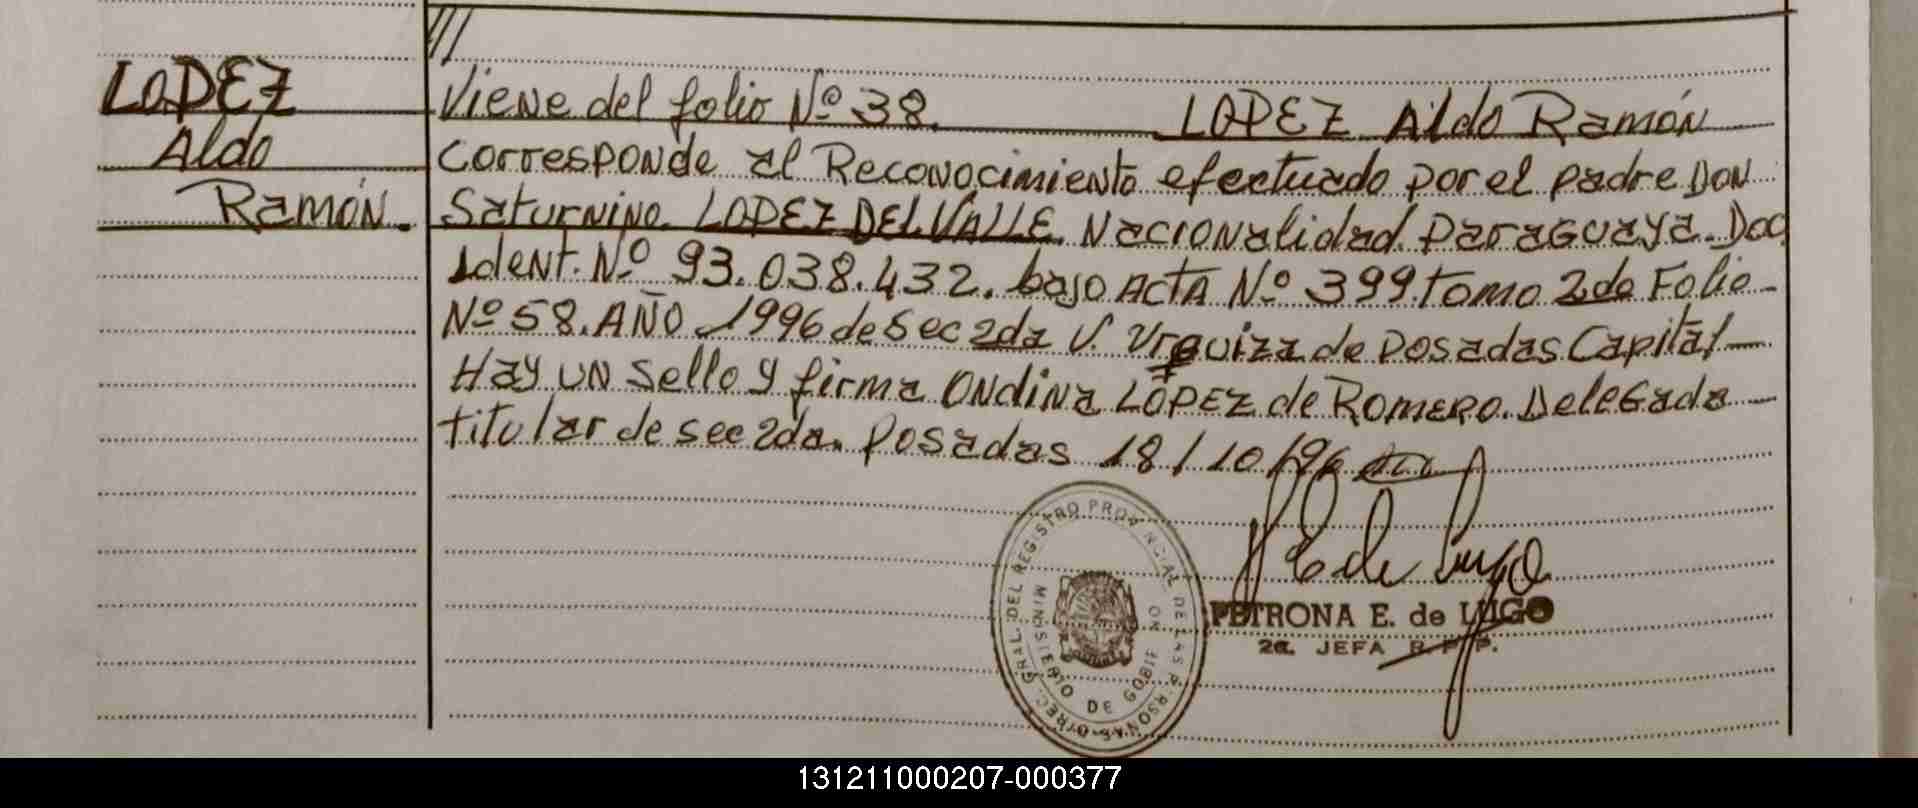 LOPEZ
Aldo
Ramón.
///
Viene del folio Nº 38. LOPEZ Aldo Ramón
Corresponde al Reconocimiento efectuado por el padre DON
Saturnino LOPEZ DEL VALLE. Nacionalidad Paraguaya. Doc
Ident. Nº 93.038.432. bajo ACTA Nº 399. tomo 2do Folio
Nº 58. AÑO 1996 de Sec 2da V. Urquiza de Posadas Capital
Hay un sello y firma Ondina LOPEZ de ROMERO. Delegada
titular de sec 2da. Posadas 18/10/96
DIREC. GRAL. DEL REGISTRO PROVINCIAL DE LAS PERSONAS
MINISTERIO DE GOBIERNO
PETRONA E. de LUGO
2a. JEFA R.P.P.
131211000207-000377